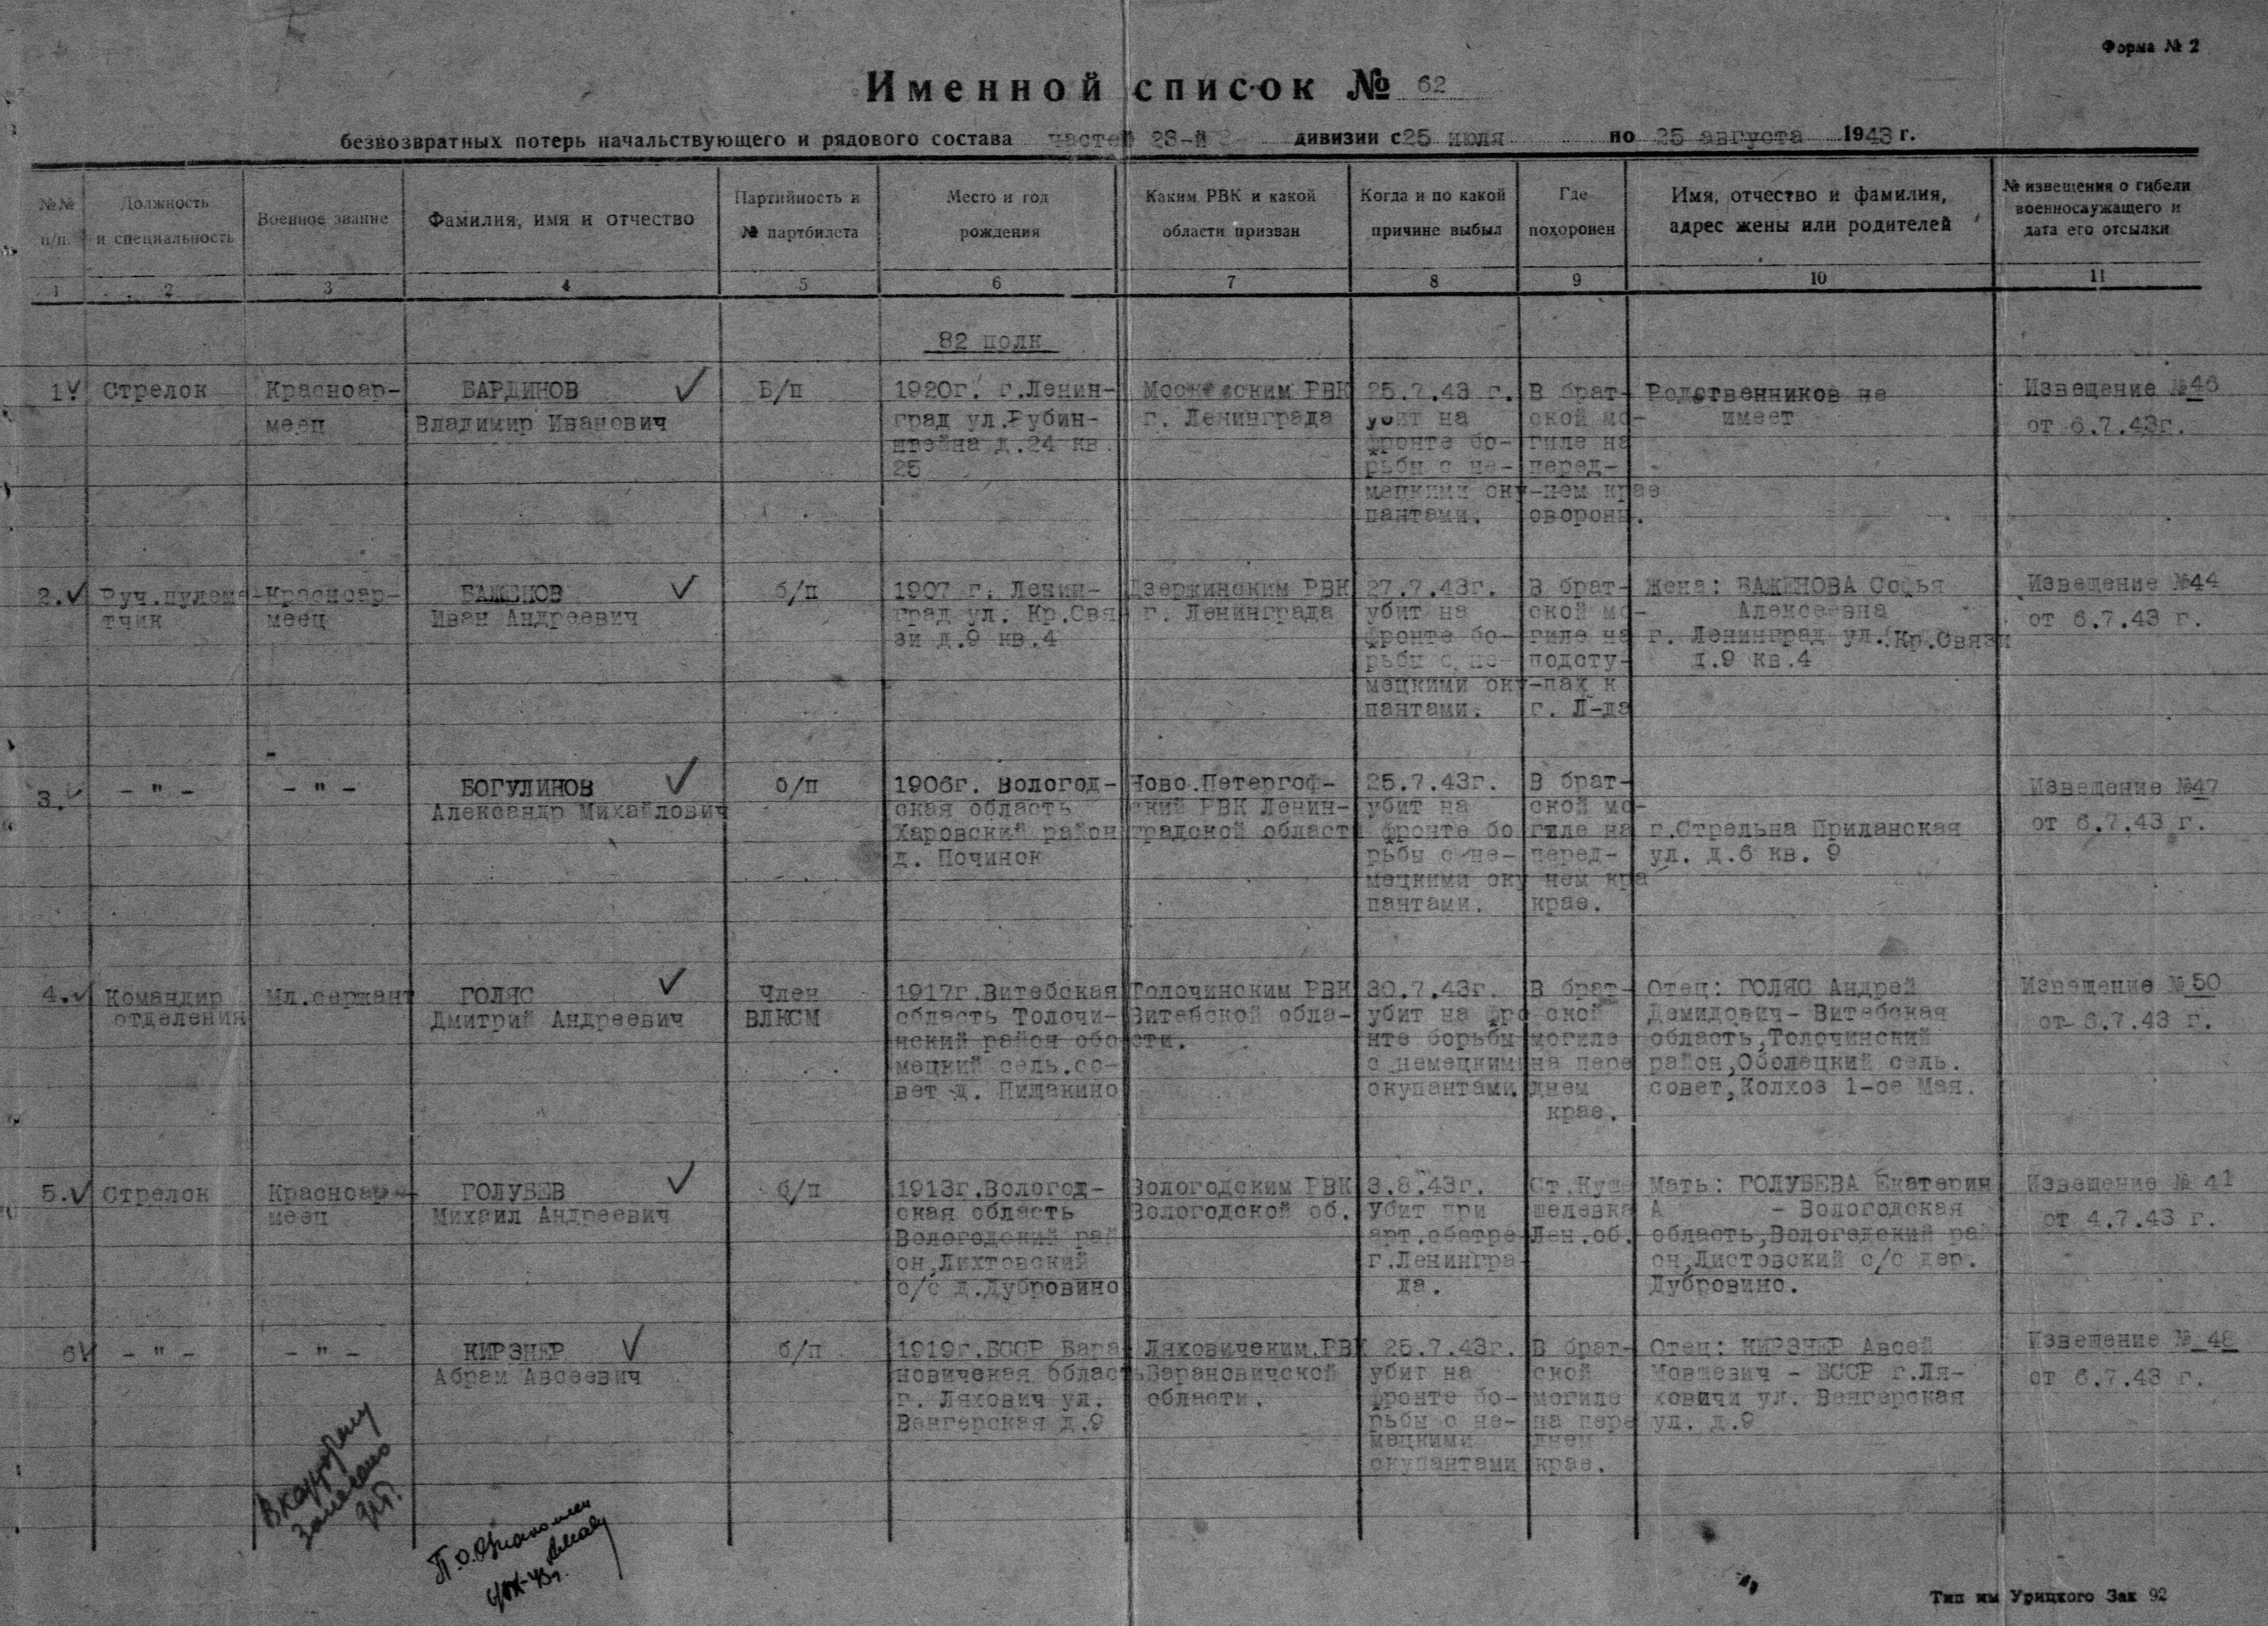 Форма № 2
Именной список № 62
безвозвратных потерь начальствующего и рядового состава частей 23-й дивизии с 25 июля по 25 августа 1943 г.
№№ п/п.
Должность и специальность
Военное звание
Фамилия, имя и отчество
Партийность и № партбилета
Место и год рождения
Каким РВК и какой области призван
Когда и по какой причине выбыл
Где похоронен
Имя, отчество и фамилия, адрес жены или родителей
№ извещения о гибели военнослужащего и дата его отсылки
1 2 3 4 5 6 7 8 9 10 11
82 полк
1.
Стрелок
Красноар-
меец
БАРДИНОВ
Владимир Иванович
Б/п
1920г. г.Ленин-
град ул.Рубин-
штейна д.24 кв.
25
Московским РВК
г. Ленинграда
25.7.43 г.
убит на
фронте бо-
рьбы с не-
мецкими оку-
пантами.
В брат-
ской мо-
гиле на
перед-
нем крае
овороны.
Родственников не
имеет
Извещение №46
от 6.7.43г.
2.
Руч.пулеме-
тчик
Красноар-
меец
БАЖЕНОВ
Иван Андреевич
б/п
1907 г. Ленин-
град ул. Кр.Свя
зи д.9 кв.4
Дзержинским РВК
г. Ленинграда
27.7.43г.
убит на
фронте бо-
рьбы с не-
мецкими оку-
пантами.
В брат-
ской мо-
гиле на
подсту-
пах к
г. Л-да
Жена: БАЖЕНОВА Софья
Алексеевна
г. Ленинград ул. Кр.Связи
д.9 кв.4
Извещение №44
от 6.7.43 г.
3.
- " -
- " -
БОГУЛИНОВ
Александр Михайлович
б/п
1906г. Вологод-
ская область
Харовский район
д. Починок
Ново.Петергоф-
ский РВК Ленин-
градской област
25.7.43г.
убит на
фронте бо
рьбы с не-
мецкими оку
пантами.
В брат-
ской мо-
гиле на
перед-
нем кра
крае.
г.Стрельна Приланская
ул. д.6 кв. 9
Извещение №47
от 6.7.43 г.
4.
Командир
отделения
Мл.сержант
ГОЛЯС
Дмитрий Андреевич
Член
ВЛКСМ
1917г.Витебская
область Толочи-
нский район обо
мецкий сель.со-
вет д. Пищакино
Толочинским РВК
Витебской обла-
сти.
30.7.43г.
убит на фро
нте борьбы
с немецкими
окупантами.
В брат-
ской
могиле
на пере
днем
крае.
Отец: ГОЛЯС Андрей
Демидович- Витебская
область,Толочинский
район,Оболецкий сель.
совет,Колхоз 1-ое Мая.
Извещение №50
от 6.7.43 г.
5.
Стрелок
Красноар-
меец
ГОЛУБЕВ
Михаил Андреевич
б/п
1913г.Вологод-
ская область
Вологодский рай
он,Лихтовский
с/с д.Дубровино
Вологодским РВК
Вологодской об.
3.8.43г.
Убит при
арт.обстре
г.Ленингра-
да.
Ст.Куше
шелевка
Лен.об.
Мать: ГОЛУБЕВА Екатерин
А - Вологодская
область,Вологодский рай
он,Листовский с/с дер.
Дубровино.
Извещение № 41
от 4.7.43 г.
6
- " -
- " -
КИРЗНЕР
Абрам Авсеевич
б/п
1919г.БССР Бара
новичская област
г. Ляхович ул.
Венгерская д.9
Ляховичским.РВК
Барановичской
области.
25.7.43г.
убит на
фронте бо-
рьбы с не-
мецкими
окупантами
В брат-
ской
могиле
на пере
днем
крае.
Отец: КИРЗНЕР Авсей
Мовшевич - БССР г.Ля-
ховичи ул. Венгерская
ул. д.9
Извещение № 48
от 6.7.43 г.
В картотеку
занесено
Тип им Урицкого Зак 92